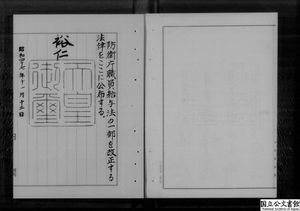 防衛庁職員給与法の一部を改正する
法律をここに公布する。
裕仁
天皇
御璽
昭和四十七年十一月十三日
国立公文書館
National Archives of Japan